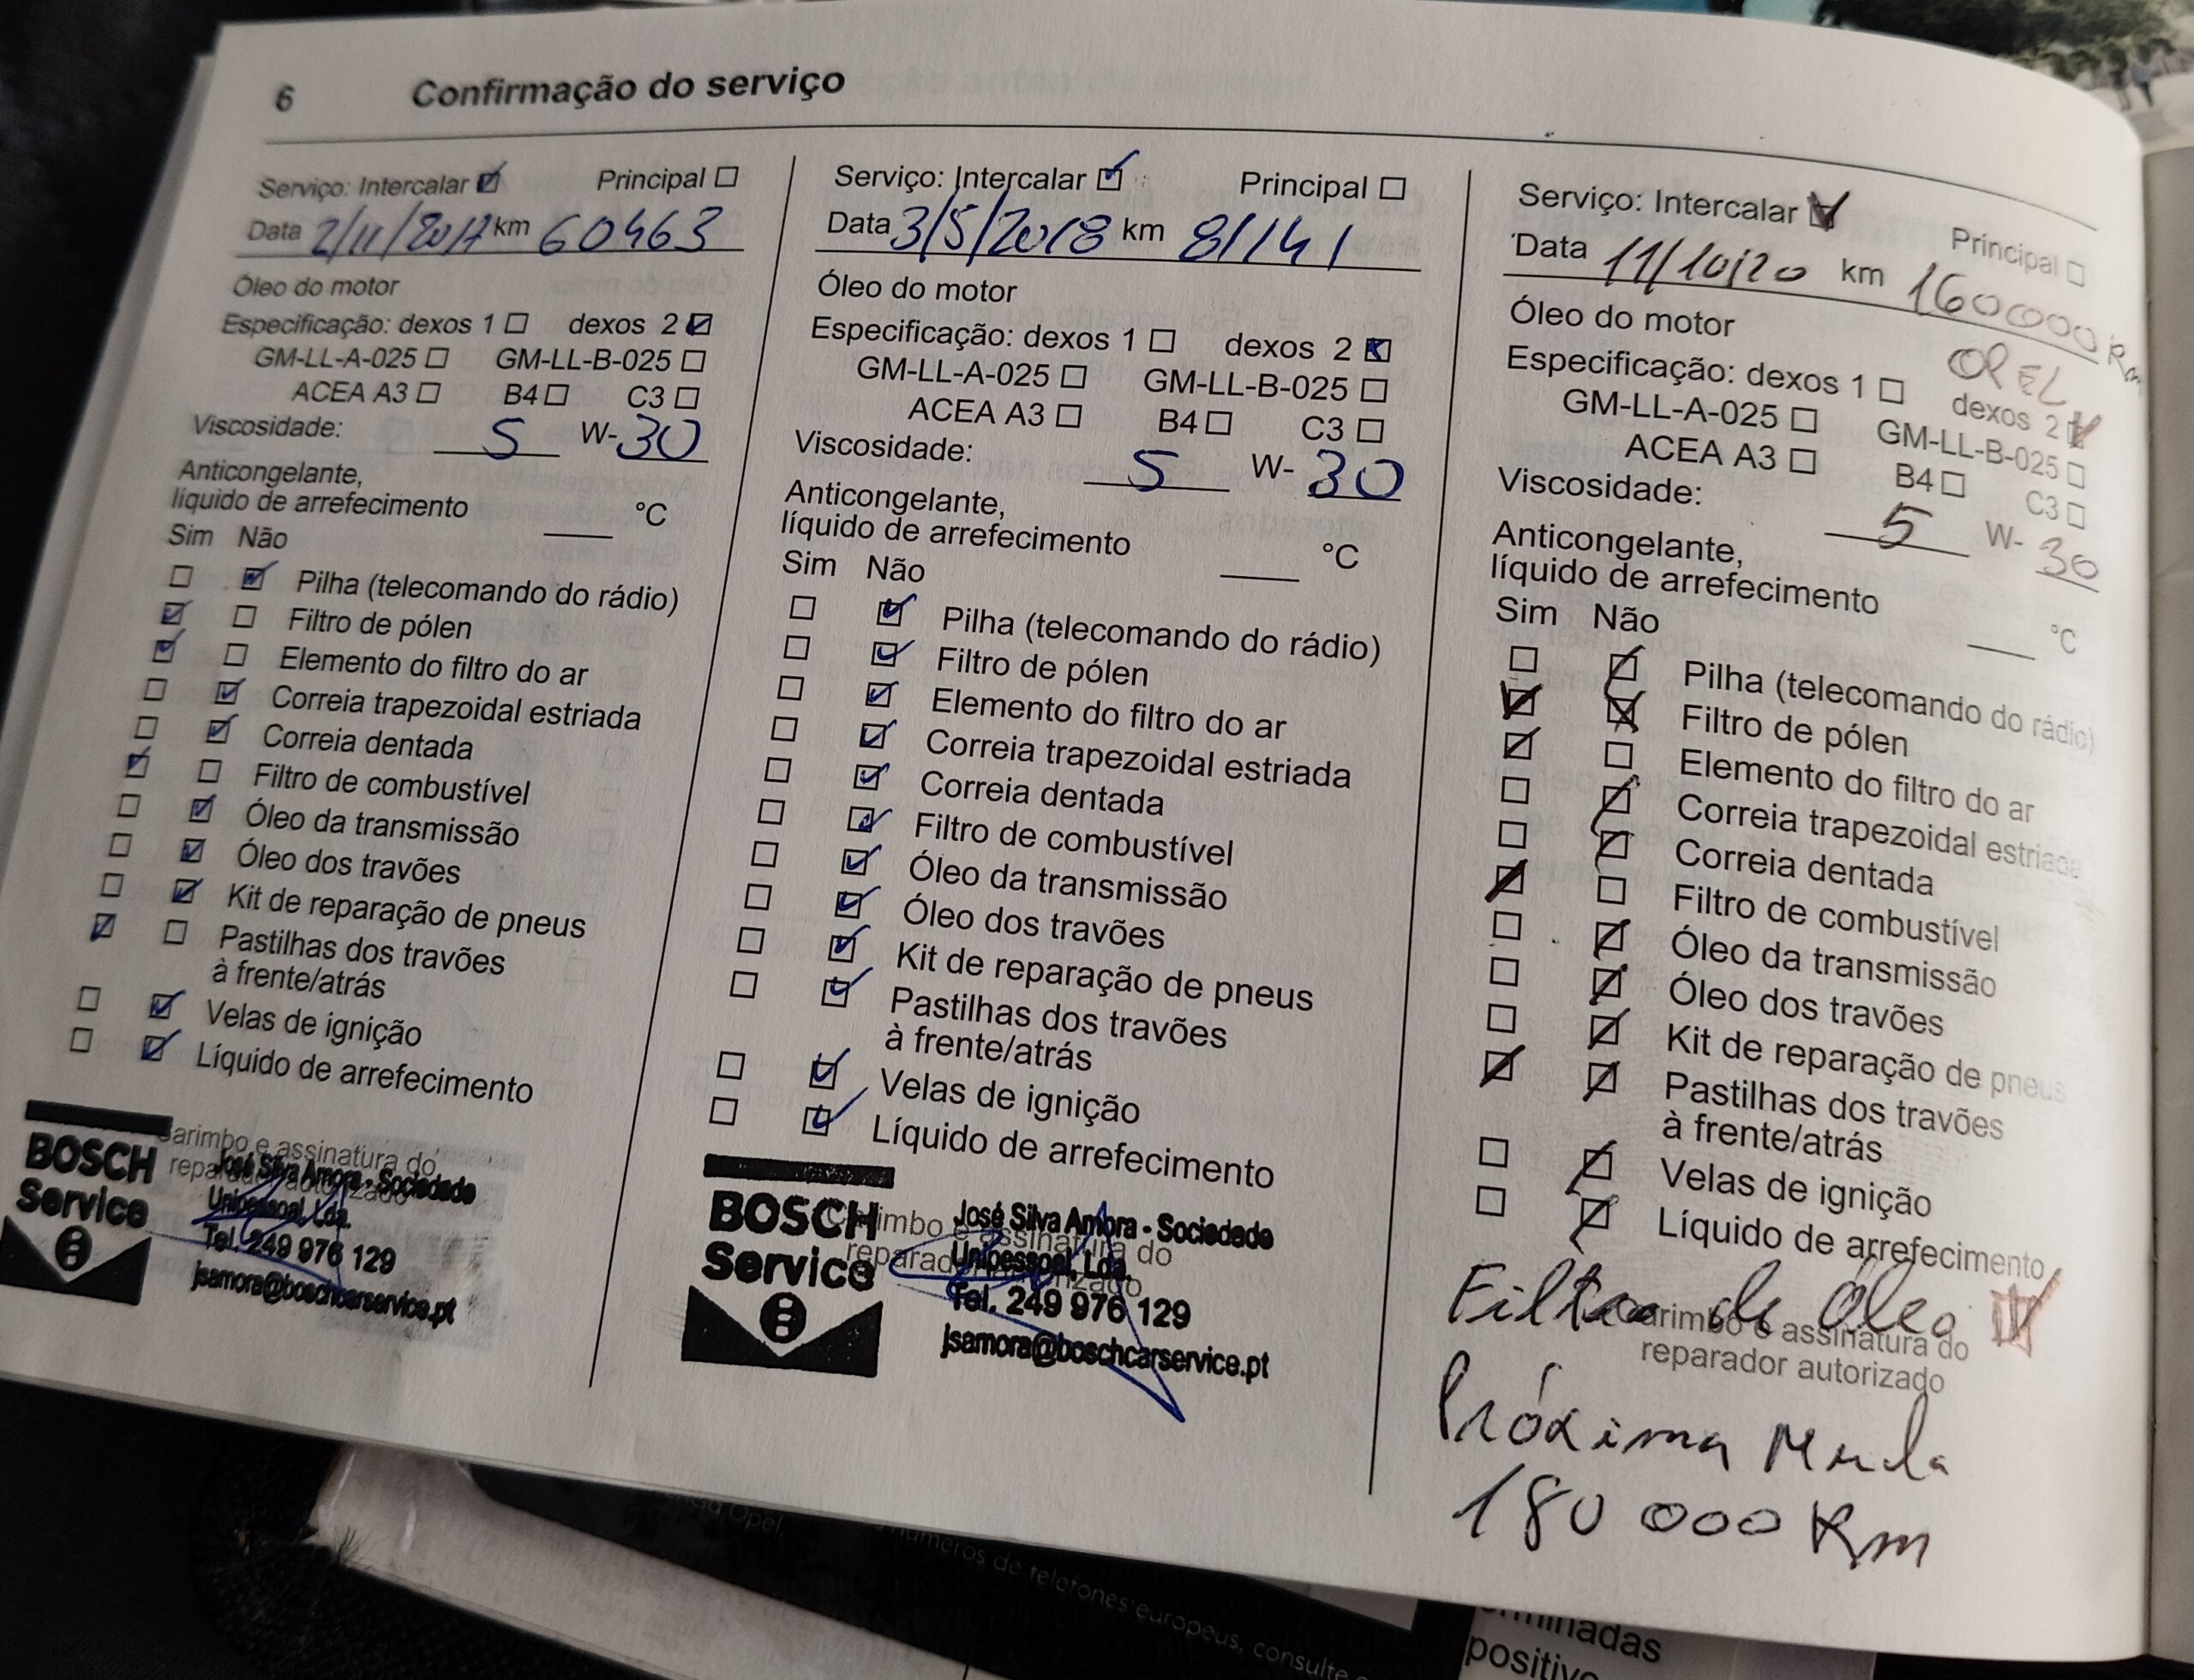 6 Confirmação do serviço
Serviço: Intercalar ☑ Principal ☐
Data 2/11/2017 km 60463
Óleo do motor
Especificação: dexos 1 ☐ dexos 2 ☑
GM-LL-A-025 ☐ GM-LL-B-025 ☐
ACEA A3 ☐ B4 ☐ C3 ☐
Viscosidade: 5 W-30
Anticongelante,
líquido de arrefecimento ___ °C
Sim Não
☐ ☑ Pilha (telecomando do rádio)
☑ ☐ Filtro de pólen
☑ ☐ Elemento do filtro do ar
☐ ☑ Correia trapezoidal estriada
☐ ☑ Correia dentada
☑ ☐ Filtro de combustível
☐ ☑ Óleo da transmissão
☐ ☑ Óleo dos travões
☐ ☑ Kit de reparação de pneus
☑ ☐ Pastilhas dos travões
à frente/atrás
☐ ☑ Velas de ignição
☐ ☑ Líquido de arrefecimento
Carimbo e assinatura do
reparador autorizado
BOSCH
Service
José Silva Amora - Sociedade
Unipessoal, Lda.
Tel. 249 976 129
jsamora@boschcarservice.pt
Serviço: Intercalar ☑ Principal ☐
Data 3/5/2018 km 81141
Óleo do motor
Especificação: dexos 1 ☐ dexos 2 ☑
GM-LL-A-025 ☐ GM-LL-B-025 ☐
ACEA A3 ☐ B4 ☐ C3 ☐
Viscosidade: 5 W-30
Anticongelante,
líquido de arrefecimento ___ °C
Sim Não
☐ ☑ Pilha (telecomando do rádio)
☐ ☑ Filtro de pólen
☐ ☑ Elemento do filtro do ar
☐ ☑ Correia trapezoidal estriada
☐ ☑ Correia dentada
☐ ☑ Filtro de combustível
☐ ☑ Óleo da transmissão
☐ ☑ Óleo dos travões
☐ ☑ Kit de reparação de pneus
☐ ☑ Pastilhas dos travões
à frente/atrás
☐ ☑ Velas de ignição
☐ ☑ Líquido de arrefecimento
Carimbo e assinatura do
reparador autorizado
BOSCH
Service
José Silva Amora - Sociedade
Unipessoal, Lda.
Tel. 249 976 129
jsamora@boschcarservice.pt
Serviço: Intercalar ☑ Principal ☐
Data 11/10/20 km 160000 Km
Óleo do motor OPEL
Especificação: dexos 1 ☐ dexos 2 ☑
GM-LL-A-025 ☐ GM-LL-B-025 ☐
ACEA A3 ☐ B4 ☐ C3 ☐
Viscosidade: 5 W-30
Anticongelante,
líquido de arrefecimento ___ °C
Sim Não
☐ ☑ Pilha (telecomando do rádio)
☑ ☒ Filtro de pólen
☑ ☐ Elemento do filtro do ar
☐ ☑ Correia trapezoidal estriada
☐ ☑ Correia dentada
☑ ☐ Filtro de combustível
☐ ☑ Óleo da transmissão
☐ ☑ Óleo dos travões
☐ ☑ Kit de reparação de pneus
☑ ☑ Pastilhas dos travões
à frente/atrás
☐ ☑ Velas de ignição
☐ ☑ Líquido de arrefecimento
Filtro de Óleo ☑
Carimbo e assinatura do
reparador autorizado
Próxima Muda
180 000 Km
Opel.
números de telefones europeus, consulte
minadas
positiv